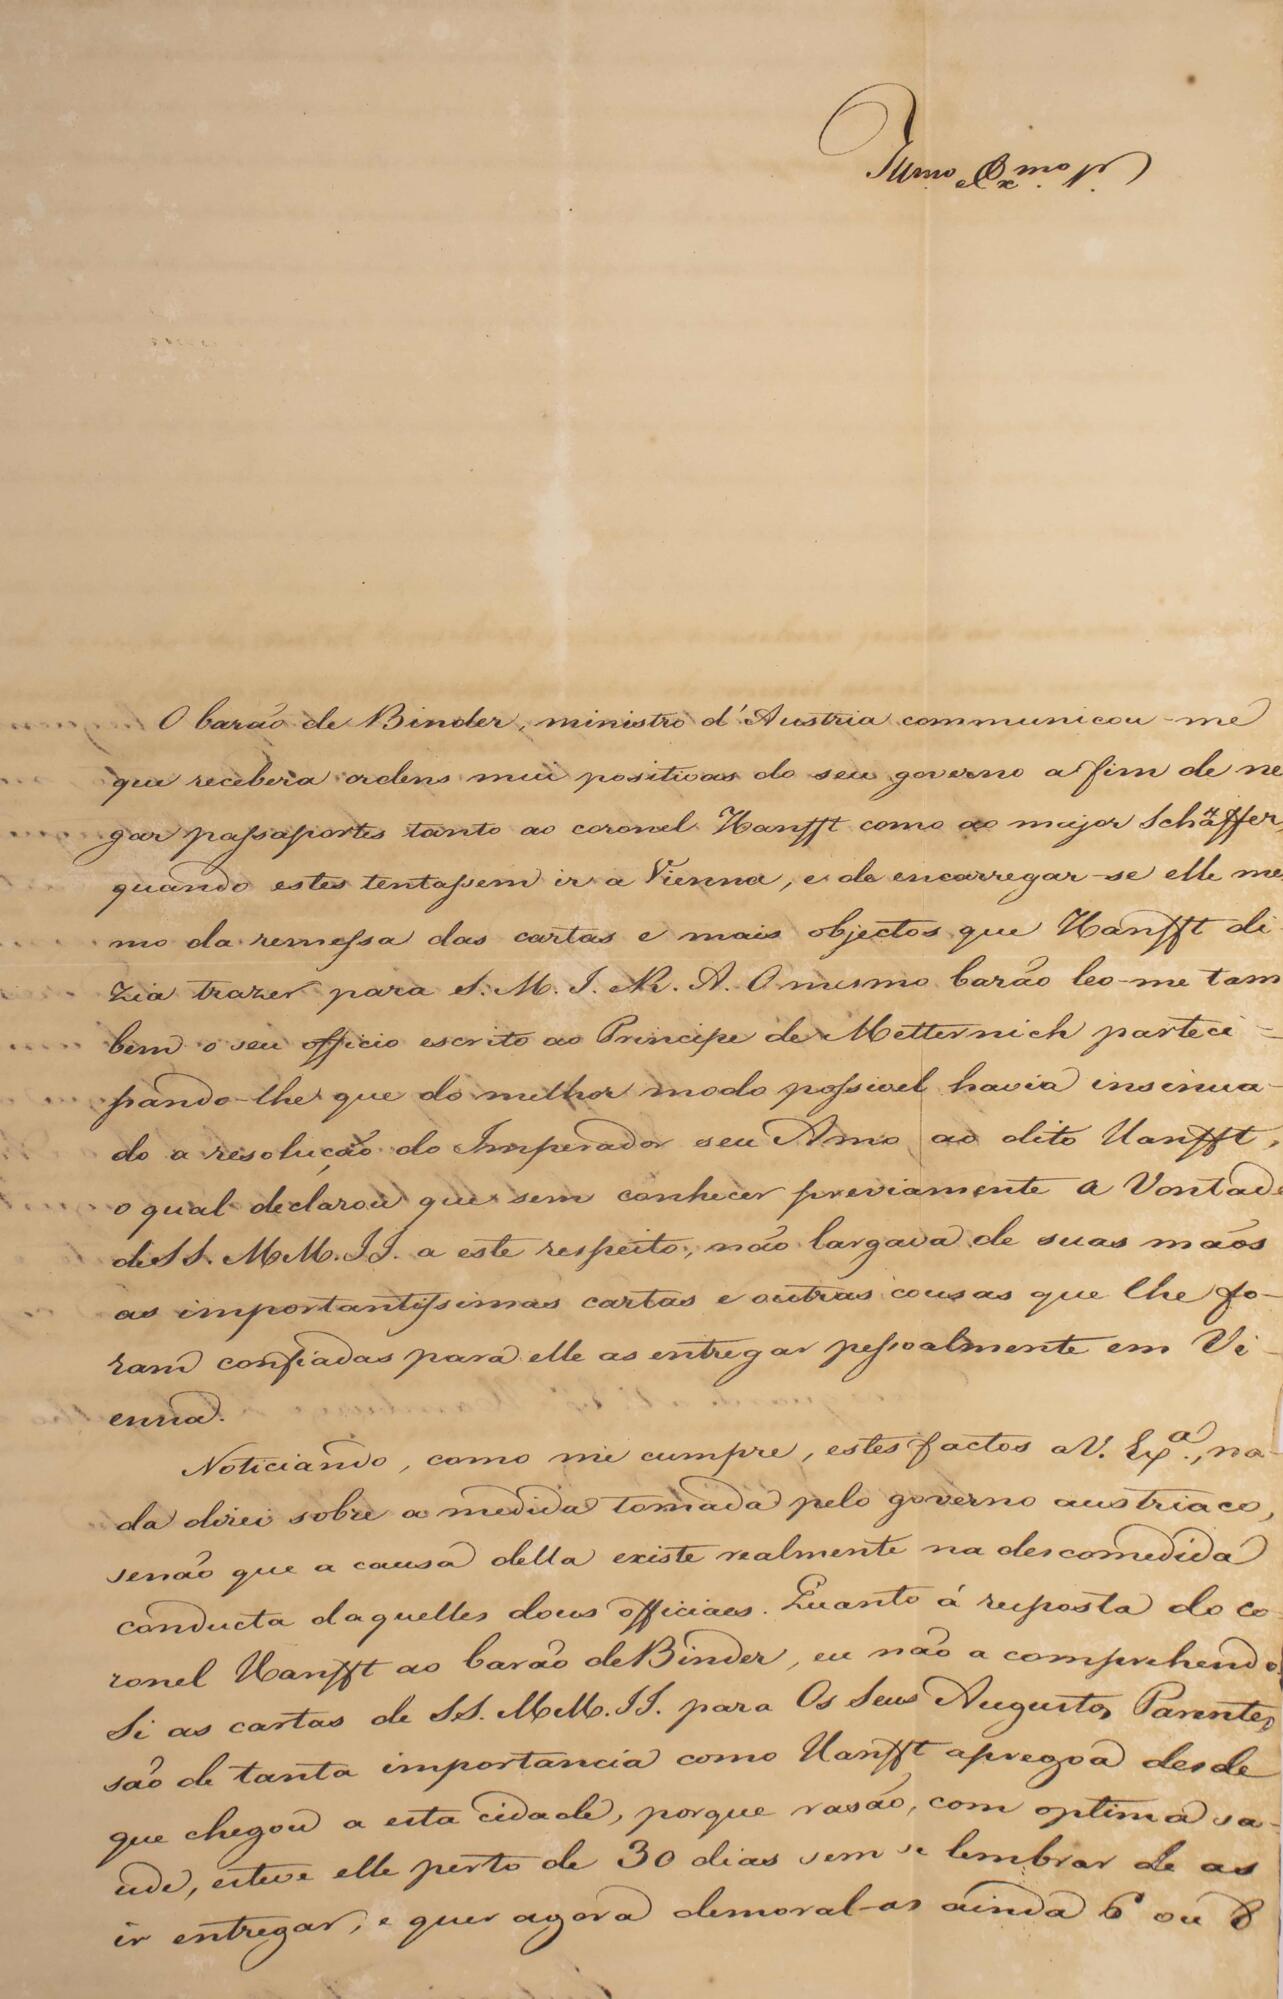 Illmo. e Exmo. Sr.
O barão de Binder, ministro d'Austria communicou-me
que recebera ordens mui positivas do seu governo a fim de ne
gar passaportes tanto ao coronel Hanfft como ao major Schäffer,
quando estes tentassem ir a Vienna, e de encarregar-se elle mes
mo da remessa das cartas e mais objectos que Hanfft di-
zia trazer para S. M. I. R. A. O mesmo barão leo-me tam
bem o seu officio escrito ao Principe de Metternich parteci-
pando-lhe que do melhor modo possivel havia insinua-
do a resolução do Imperador seu Amo ao dito Hanfft,
o qual declarou que sem conhecer previamente a Vontade
de SS. MM. II. a este respeito, não largava de suas mãos
as importantissimas cartas e outras cousas que lhe fo-
ram confiadas para elle as entregar pessoalmente em Vi-
enna.
Noticiando, como me cumpre, estes factos a V. Exª., na-
da direi sobre a medida tomada pelo governo austriaco,
senão que a causa della existe realmente na descomedida
conducta daquelles dous officiaes. Quanto á resposta do co-
ronel Hanfft ao barão de Binder, eu não a comprehendo.
Si as cartas de SS. MM. II. para Os Seus Augustos Parentes
são de tanta importancia como Hanfft apregoa desde
que chegou a esta cidade, porque rasão, com optima sa-
ude, esteve elle perto de 30 dias sem se lembrar de as
ir entregar, e quer agora demoral-as ainda 6 ou 8